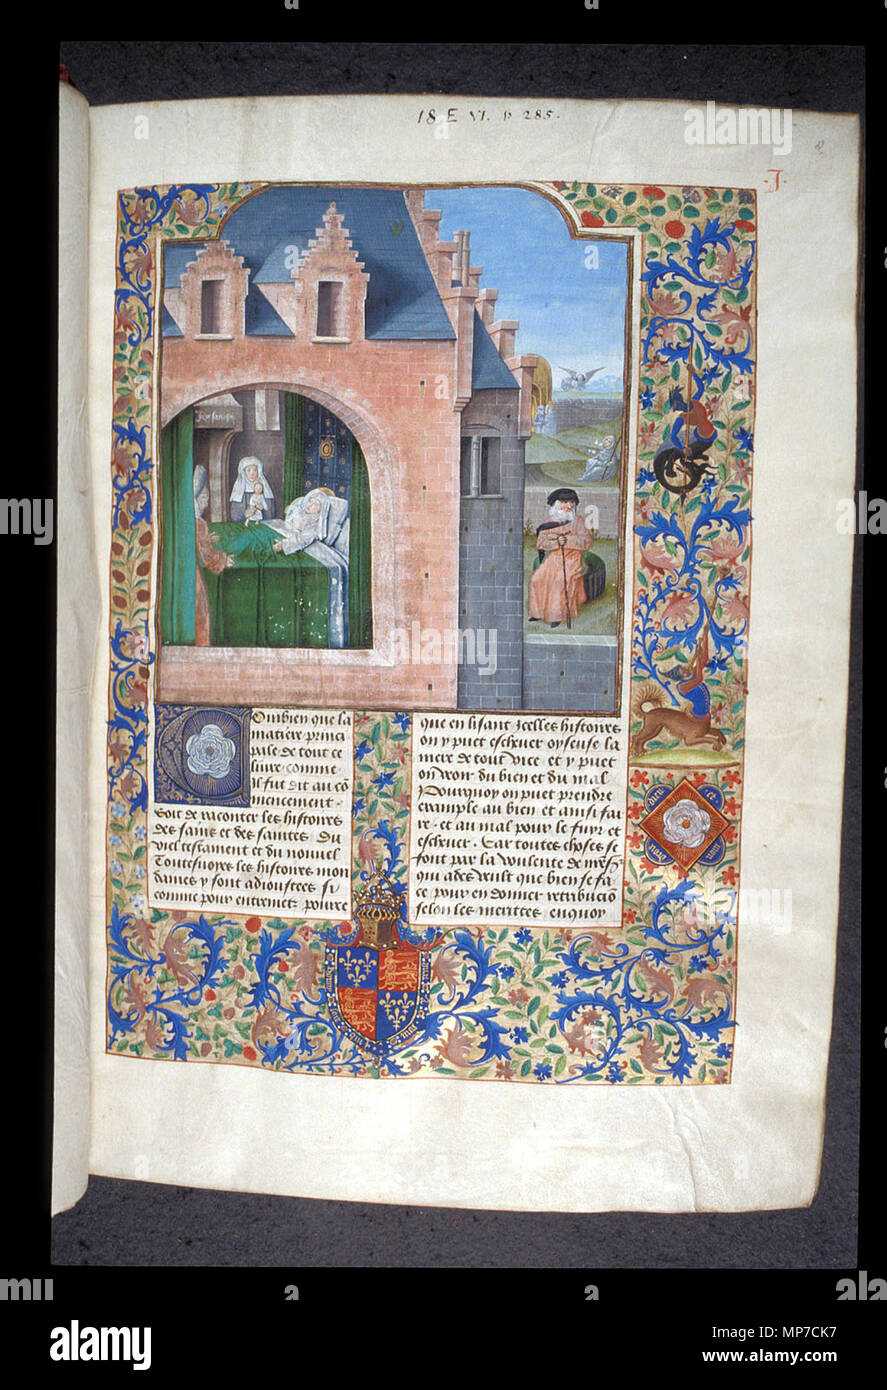 18 E VI. p 285.
8.
·J·
Combien que la
matiere princi
pale de tout ce
liure comme
Il fut dit au cō
mencement.
Soit de raconter les histoires
des sains et des saintes. Du
viel testament et du nouuel
Toutesuoyes les histoires mon
danes y sont adioustees si
comme pour entremetz
que en lisant icelles histoires
on y puet escheuer oyseuse la
mere de tout vice et y puet
on veoir du bien et du mal
Pourquoy on puet prendre
exemple au bien et ainsi fai
re. et au mal pour le fuyr et
escheuer. Car toutes choses se
font par la voulente de
qui adez veult que bien se fa
ce pour en donner retribuciō
selon les merites en quoy
dieu et
mon
alamy
Image ID: MP7CK7
www.alamy.com